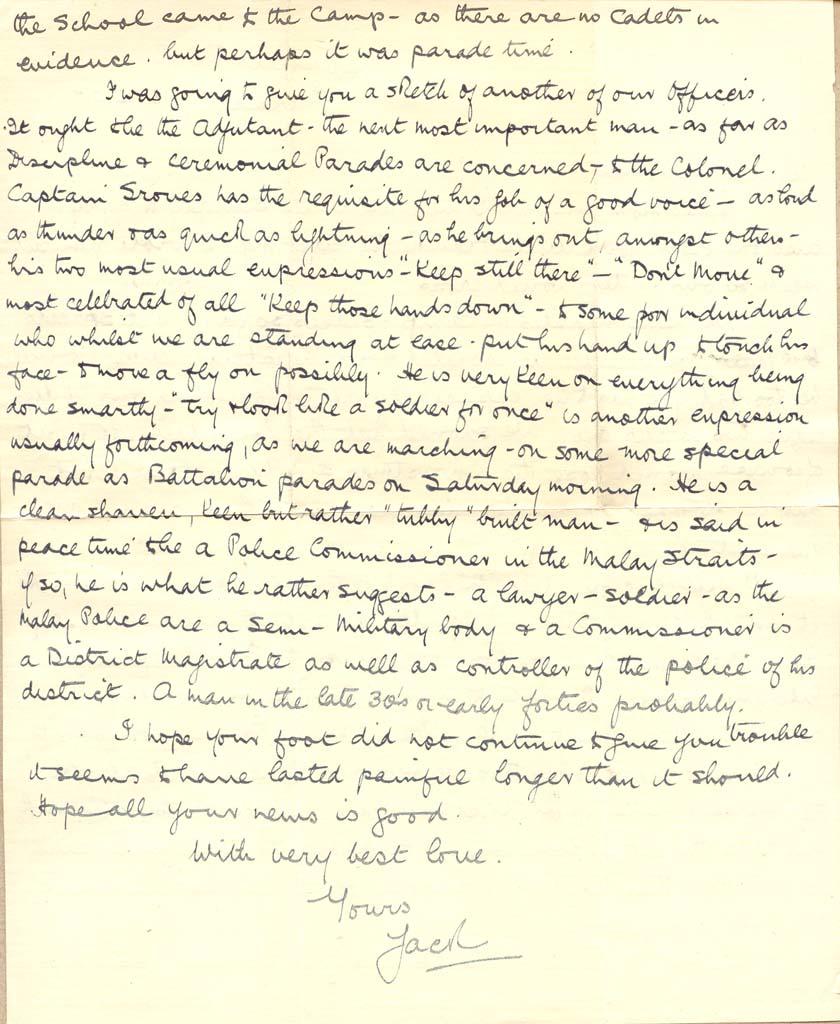 the School came to the Camp - as there are no Cadets in
evidence. but perhaps it was parade time.
I was going to give you a sketch of another of our Officers.
It ought to be the Adjutant - the next most important man - as far as
Discipline & ceremonial Parades are concerned, - to the Colonel.
Captain Groves has the requisite for his job of a good voice - as loud
as thunder & as quick as lightning - as he brings out, amongst others -
his two most usual expressions "- Keep still there" - "Don't Move" &
most celebrated of all "Keep those hands down" - to some poor individual
who whilst we are standing at ease - put his hand up to touch his
face - to move a fly on possibly. He is very keen on everything being
done smartly - "try & look like a soldier for once" is another expression
usually forthcoming, as we are marching - on some more special
parade as Battalion parades on Saturday morning. He is a
clean shaven, keen but rather "tubby" built man - & is said in
peace time to be a Police Commissioner in the Malay Straits -
if so, he is what he rather suggests - a lawyer - soldier - as the
Malay Police are a Semi - Military body & a Commissioner is
a District Magistrate as well as controller of the police of his
district. A man in the late 30's or early forties probably.
I hope your foot did not continue to give you trouble
it seems to have lasted painful longer than it should.
Hope all your news is good.
With very best love.
Yours
Jack